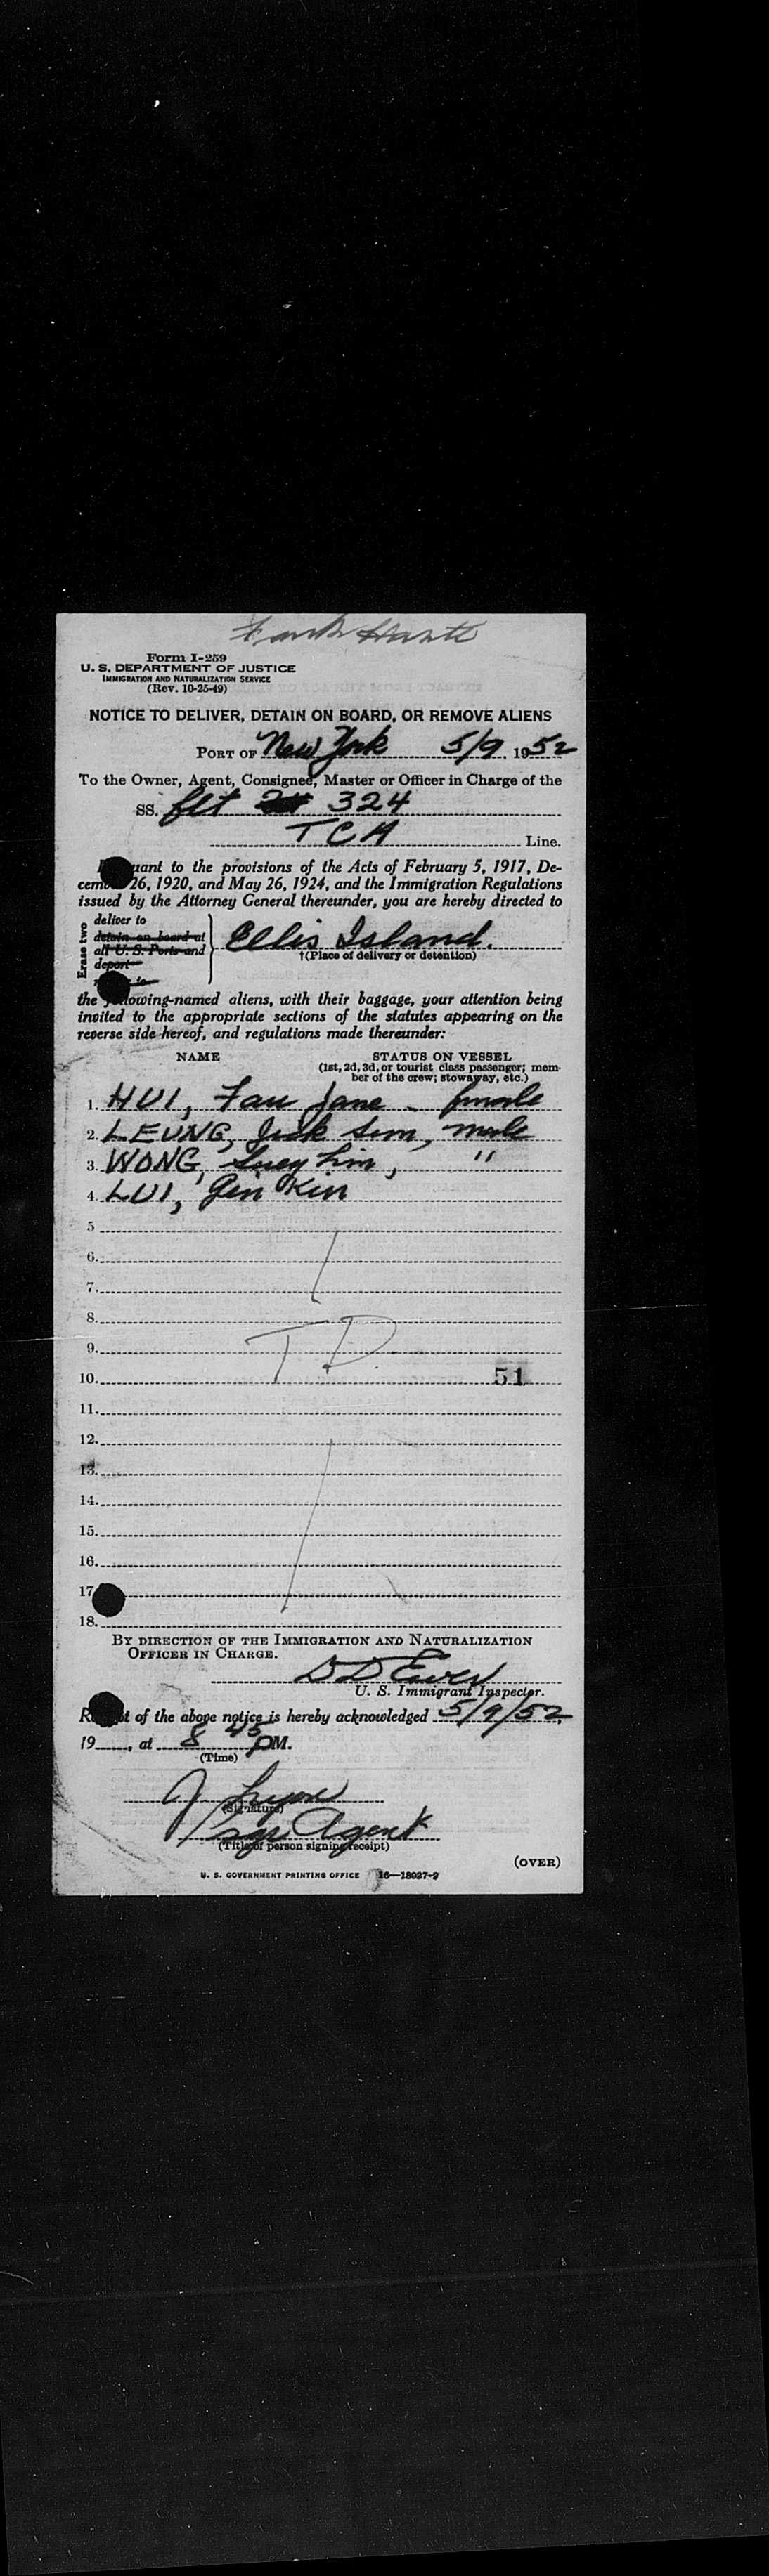 Form I-259
U. S. DEPARTMENT OF JUSTICE
IMMIGRATION AND NATURALIZATION SERVICE
(Rev. 10-25-49)
NOTICE TO DELIVER, DETAIN ON BOARD, OR REMOVE ALIENS
PORT OF New York 5/9, 1952
To the Owner, Agent, Consignee, Master or Officer in Charge of the
SS. flt 324
TCA Line.
uant to the provisions of the Acts of February 5, 1917, De-
cem 26, 1920, and May 26, 1924, and the Immigration Regulations
issued by the Attorney General thereunder, you are hereby directed to
Erase two
deliver to
detain on board at
all U. S. Ports and
deport
to
Ellis Island.
†(Place of delivery or detention)
the lowing-named aliens, with their baggage, your attention being
invited to the appropriate sections of the statutes appearing on the
reverse side hereof, and regulations made thereunder:
NAME STATUS ON VESSEL
(1st, 2d, 3d, or tourist class passenger; mem-
ber of the crew; stowaway, etc.)
1. HUI, Fau Jane - female
2. LEUNG, Jick Sem, male
3. WONG, Suey Lim, "
4. LUI, Gin Kin
5
6.
7.
8.
9. T D.
10. 51
11.
12.
13.
14.
15.
16.
17
18.
BY DIRECTION OF THE IMMIGRATION AND NATURALIZATION
OFFICER IN CHARGE.
D D
U. S. Immigrant Inspector.
R t of the above notice is hereby acknowledged 5/9/52,
19...., at 8 45 PM.
(Time)
J
(Signature)
Agent
(Title of person signing receipt)
(OVER)
U. S. GOVERNMENT PRINTING OFFICE 16—18027-2